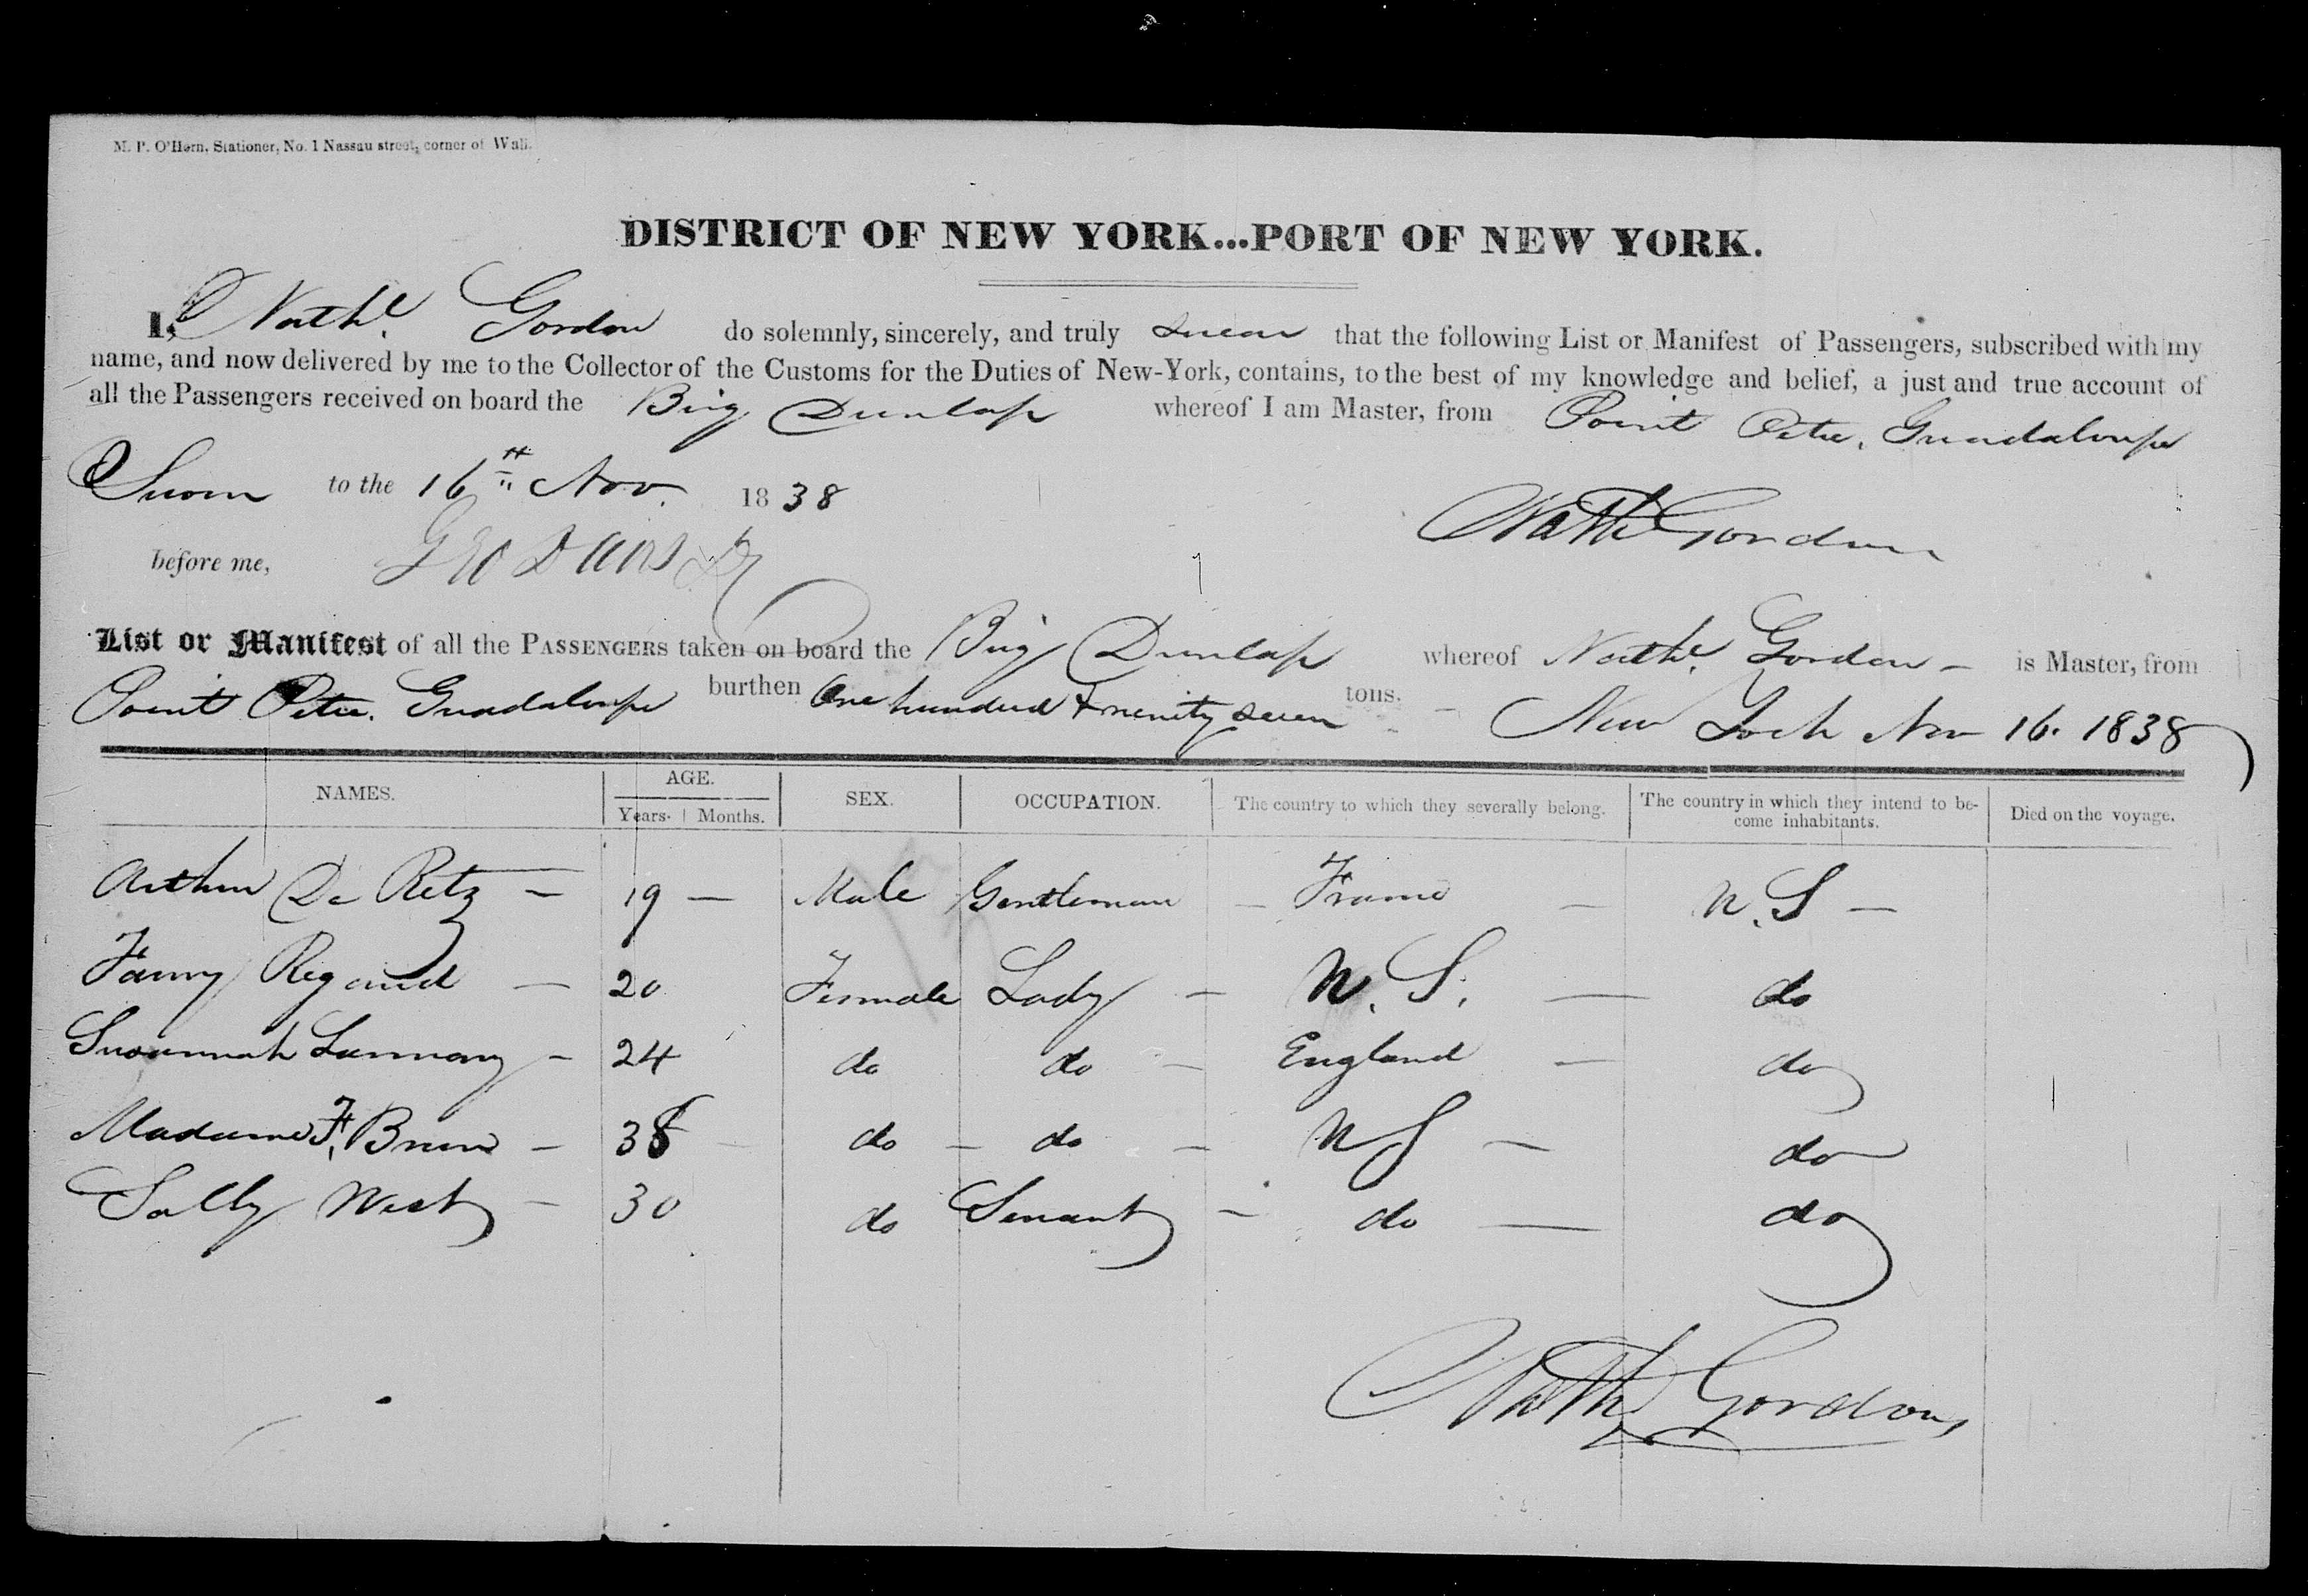 M. P. O'Hern, Stationer, No. 1 Nassau street, corner of Wall.
DISTRICT OF NEW YORK...PORT OF NEW YORK.
I, Nathl. Gordon do solemnly, sincerely, and truly swear that the following List or Manifest of Passengers, subscribed with my
name, and now delivered by me to the Collector of the Customs for the Duties of New-York, contains, to the best of my knowledge and belief, a just and true account of
all the Passengers received on board the Brig Dunlap whereof I am Master, from Point Petre, Guadaloupe
Sworn to the 16th Nov. 1838
Nathl Gordon
before me, Geo Davis
List or Manifest of all the PASSENGERS taken on board the Brig Dunlap whereof Nathl. Gordon - is Master, from
Point Petre. Guadaloupe burthen One hundred & ninety seven tons. - New York Nov 16. 1838
NAMES. AGE. Years. Months. SEX. OCCUPATION. The country to which they severally belong. The country in which they intend to be-
come inhabitants. Died on the voyage.
Arthur De Retz - 19 - Male Gentleman - France - U.S -
Fanny Regaud - 20 Female Lady - U.S. - do
Susannah Lammany - 24 do do - England - do
Madame F. Brun - 38 do - do - US - do
Sally West - 30 do Servant - do - do
Nathl Gordon